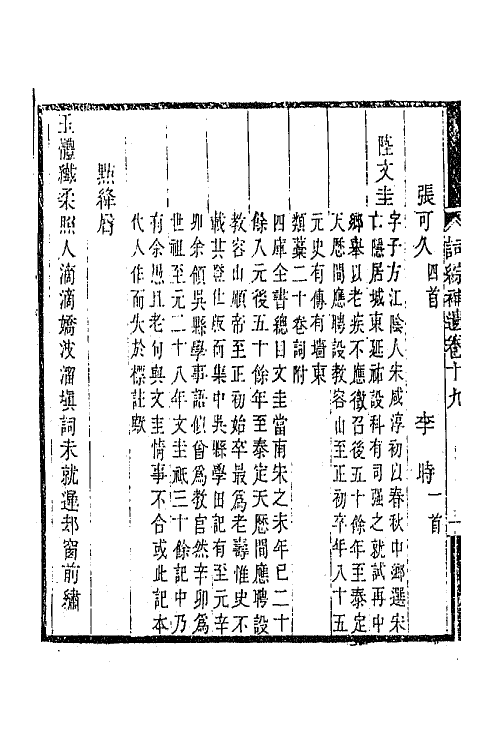 詞綜補遺卷十九
張可久四首　李時一首
陸文圭
字子方江陰人宋咸淳初以春秋中鄉選宋
亡隱居城東延祐設科有司强之就試再中
鄉舉以老疾不應徵召後五十餘年至泰定
天歷間應聘設教容山至正初卒年八十五
元史有傳有墻東
類藁二十卷詞附
四庫全書總目文圭當南宋之末年已二十
餘入元後五十餘年至泰定天歷間應聘設
教容山順帝至正初始卒最爲老壽惟史不
載其登仕版而集中吳縣學田記有至元辛
卯余領吳縣學事語似曾爲教官然辛卯爲
世祖至元二十八年文圭祇三十餘記中乃
有余愚且老句與文圭情事不合或此記本
代人作而失於標註歟
點絳唇
玉體纖柔照人滴滴嬌波溜塡詞未就遲却窗前繡